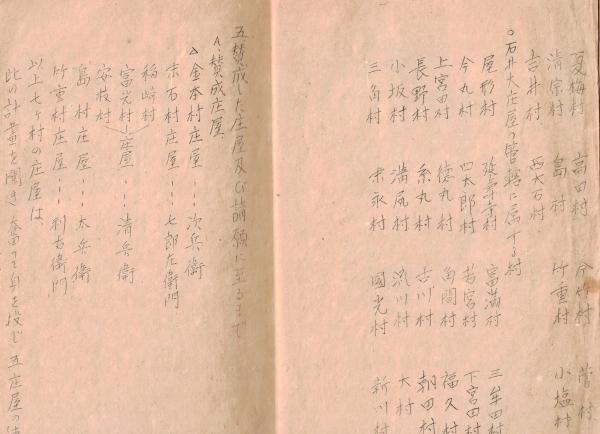 夏梅村 高田村 今竹村 菅村
清宗村 島村 竹重村 小塩村
吉井村 西大石村
○石井大庄屋の管轄に属する村
屋形村 延寿寺村 富満村 三牟田村
今丸村 四太郎村 若宮村 下宮田村
上宮田村 徳丸村 角間村 福久村
長野村 糸丸村 古川村 朝田村
小坂村 溝尻村 流川村 大村
三角村 末永村 國光村 新川
五 賛成した庄屋及び請願に至るまで
A.賛成庄屋
△金本村庄屋--- 次兵衛
朱石村庄屋--- 七郎左衛門
稲崎村
富光村 庄屋--- 清兵衛
安枝村
島村庄屋--- 太兵衛
竹重村庄屋--- 利右衛門
以上七ヶ村の庄屋は
此の計畫を聞き奮って身を投じ 五庄屋の